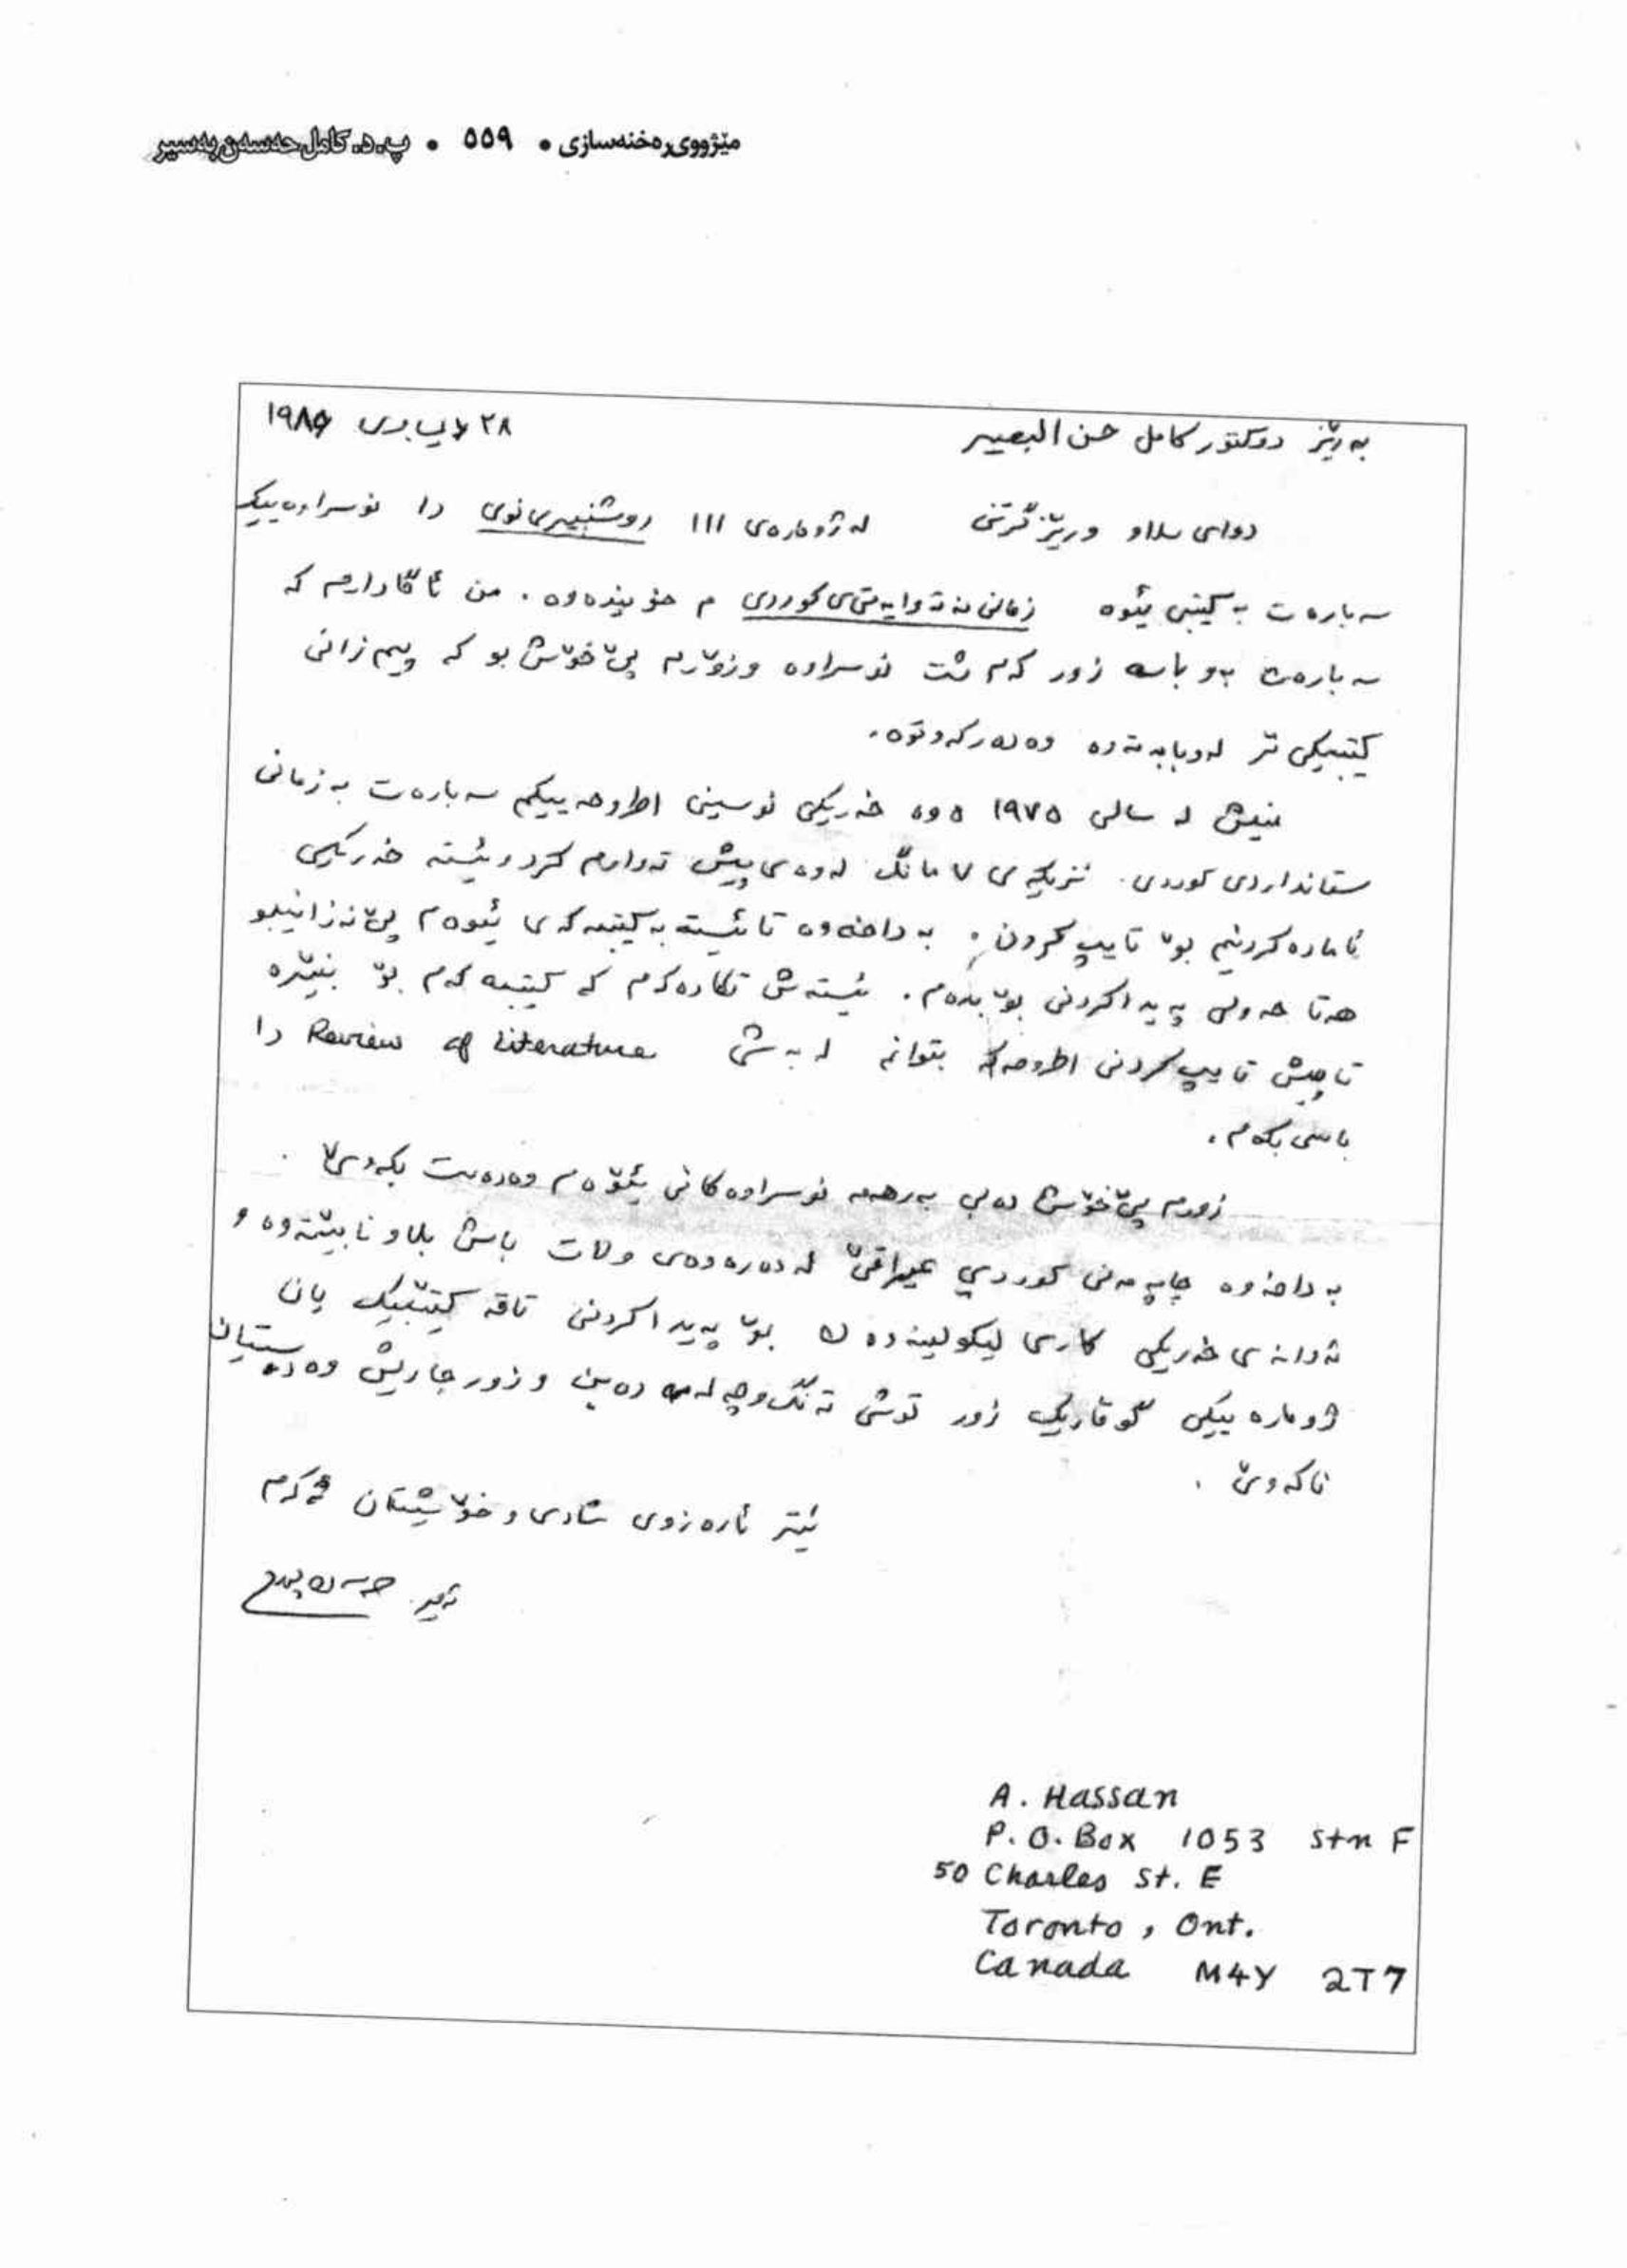 مێژووی ڕەخنەسازی • ٥٥٩ • پ.د. کامل حەسەن بەسیر
بەرێز دوکتور کامل حسن البصیر
٢٨ ی
دوای سلاو و رێز گرتن لە ژومارەی ١١١ روشنبیری نوی دا نوسراوەییک
سەبارەت بە کیتبی ئێوە زمانی نەتەوایەتی کوردی م خویندەوە. من ئاگادارم کە
سەبارەت بەو باسە زور کەم شت نوسراوە و زۆرم پێ خۆش بو کە پیم زانی
کیتبیکی تر لەو بابەتەوە وەدەرکەوتوە.
منیش لە سالی ١٩٧٥ ەوە خەریکی نوسینی اطروحەییکم سەبارەت بە زمانی
ستانداردی کوردی. نزیکەی ٧ مانگ لەوەی پیش تەواوم کرد و ئێستە خەریکی
ئامادەکردنیم بۆ تایپ کردن. بە داخەوە تا ئێستە بە کیتبەکەی ئێوەم پێ نەزانیبو
هەتا حەولی پەیداکردنی بۆ بدەم. ئێستەش تکادەکەم کە کیتبەکەم بۆ بنێرە
تا پیش تایپ کردنی اطروحەکە بتوانم لە بەشی Review of Literature دا
باسی بکەم.
زورم پێ خۆش دەبی بەرهەمە نوسراوەکانی ئێوەم وەدەست بکەوێ.
بە داخەوە چاپەمەنی کوردی عیراقێ لە دەرەوەی ولات باش بلاو نابێتەوە و
ئەوانەی خەریکی کاری لیکولینەوەن بۆ پەیداکردنی تاقە کیتبیک یان
ژومارەییکی گوڤاریک زور توشی تەنگ و چەلەمە دەبن و زور جاریش وەدەستیان
ناکەوێ.
ئیتر ئارەزوی شادی و خۆشیتان ئەکەم
ئەمیر حەسەنپور
A. Hassan
P.O. Box 1053 Stn F
50 Charles St. E
Toronto, Ont.
Canada M4Y 2T7